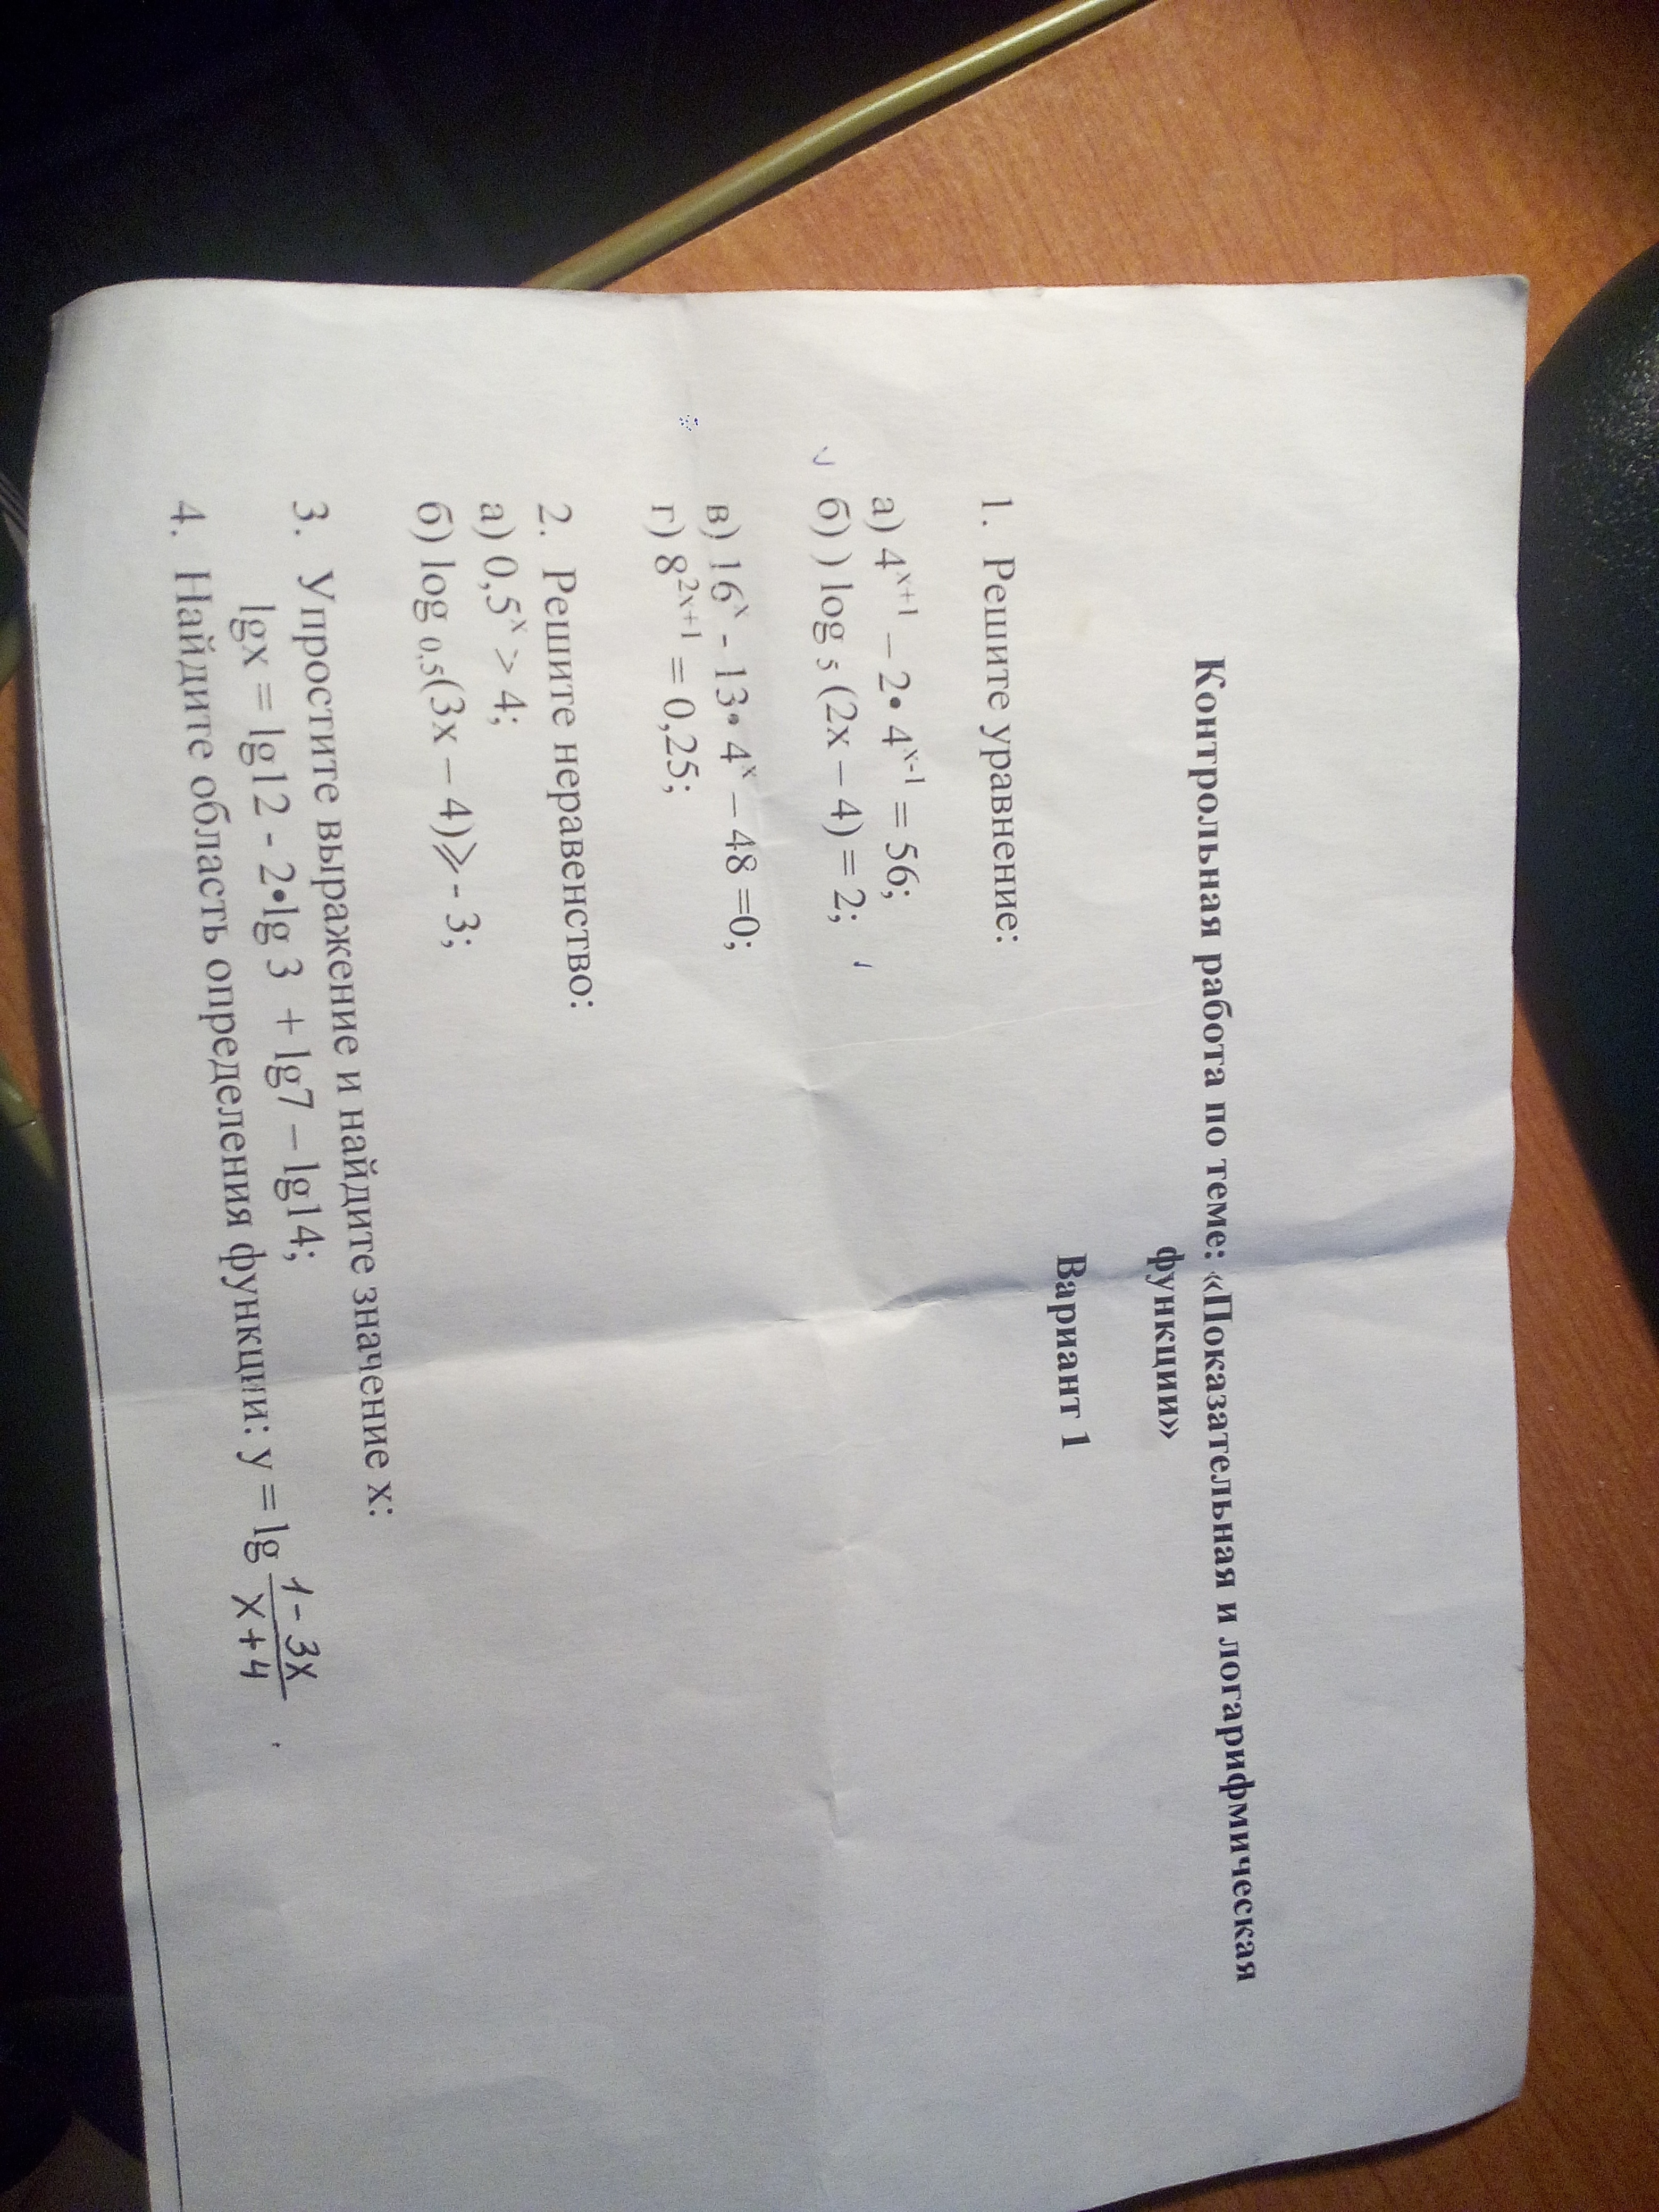 Контрольная работа по теме: «Показательная и логарифмическая
функции»
Вариант 1
1. Решите уравнение:
а) 4ˣ⁺¹ – 2• 4ˣ⁻¹ = 56;
б) ) log ₅ (2x – 4) = 2;
в) 16ˣ - 13• 4ˣ – 48 =0;
г) 8²ˣ⁺¹ = 0,25;
2. Решите неравенство:
а) 0,5ˣ > 4;
б) log ₀,₅(3x – 4)⩾ - 3;
3. Упростите выражение и найдите значение x:
lgx = lg12 - 2•lg 3 + lg7 – lg14;
4. Найдите область определения функции: y = lg (1-3x)/(x+4)